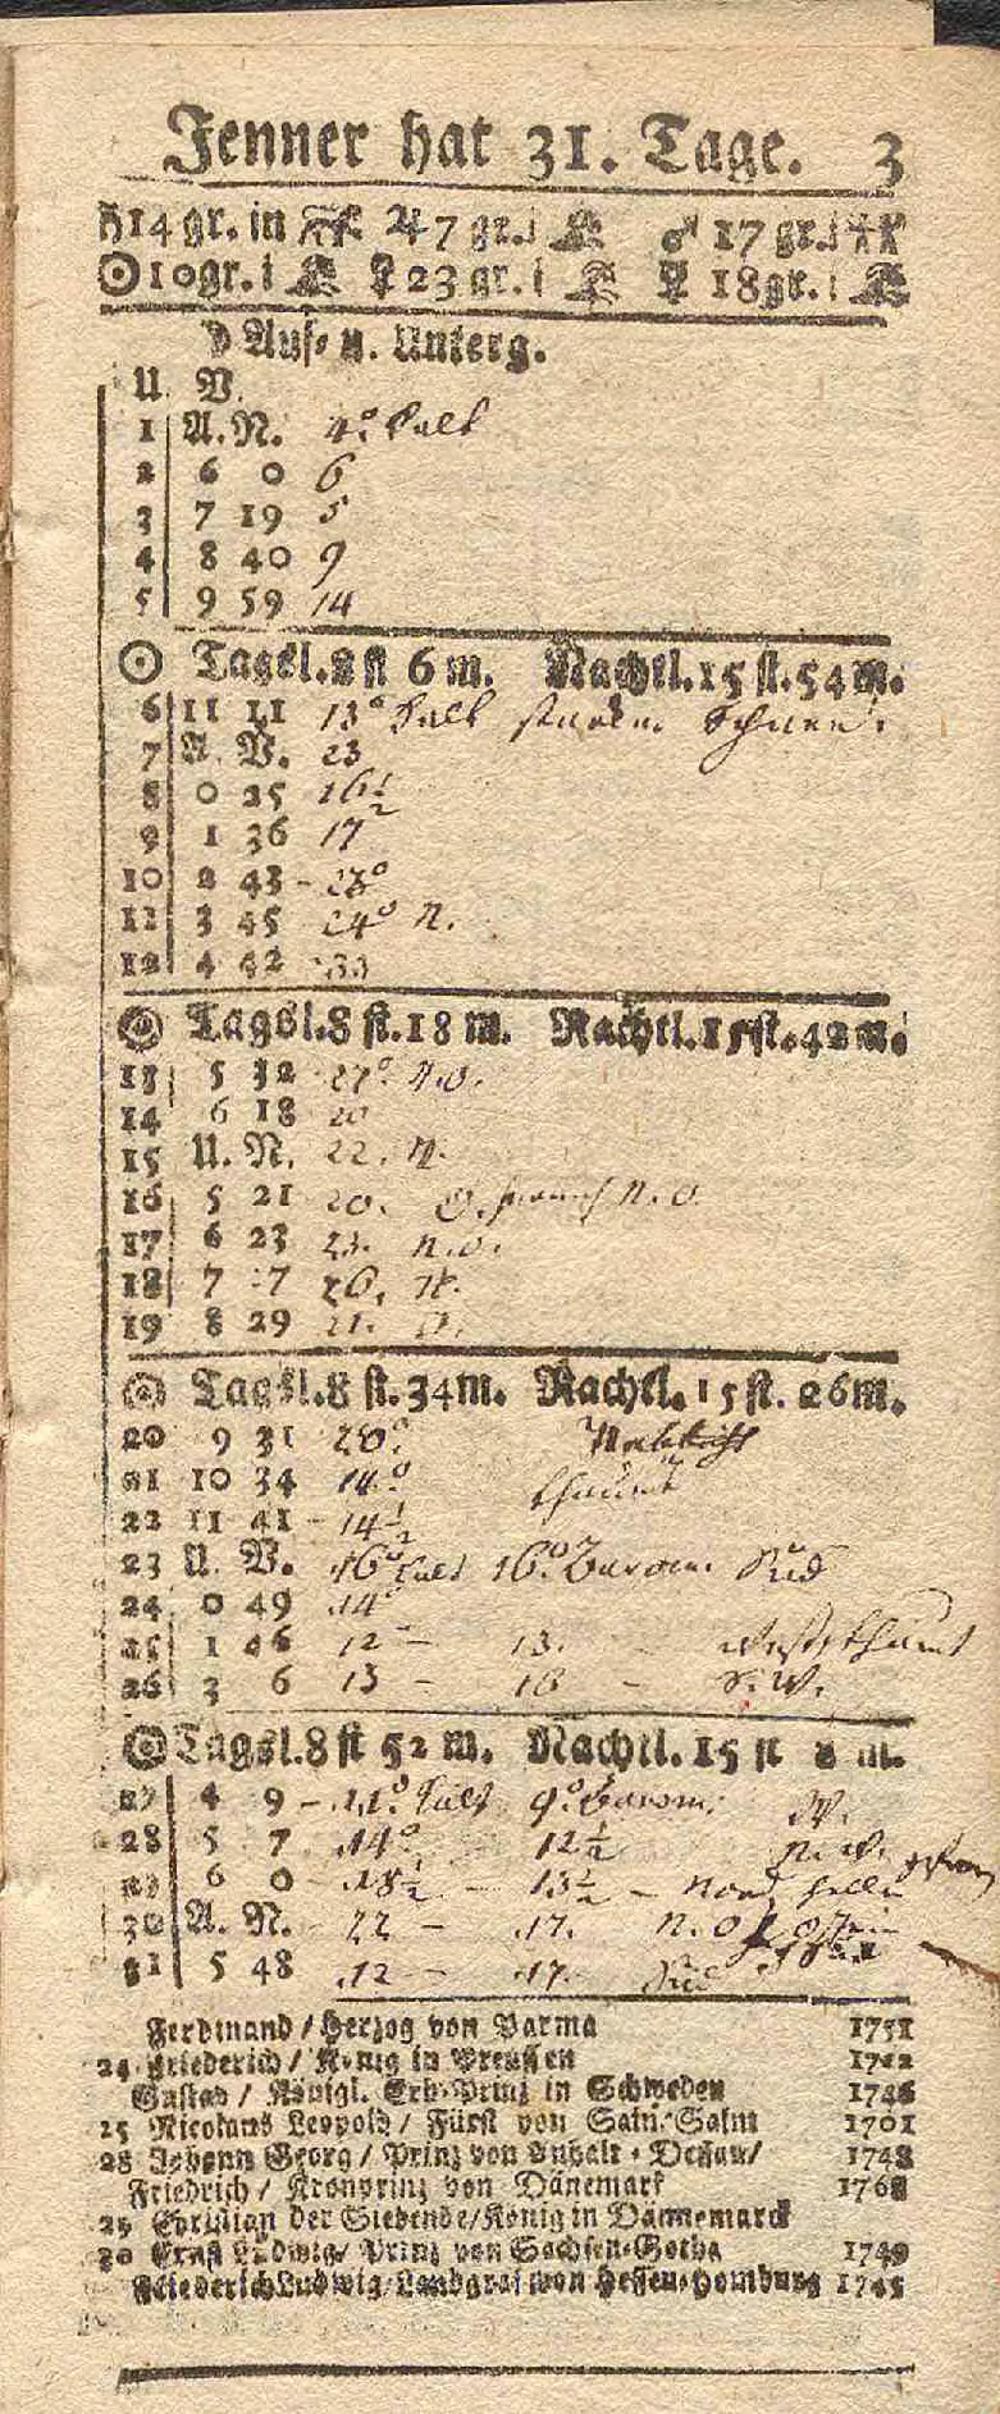 Jenner hat 31. Tage. 3
♄ 14 gr. in ♃ 7 gr. i ♂ 17 gr. i
☉ 10 gr. i ☿ 23 gr. i ♀ 18 gr. i
☽ Auf- u. Unterg.
U. V.
1 A. N. 4° kalt
2 6 0 6
3 7 19 5
4 8 40 9
5 9 59 14
☉ Tagsl. 8 st 6 m. Nachtl. 15 st. 54 m.
6 11 11 13° kalt starken Schnee
7 U. V. 23
8 0 25 16½
9 1 36 17
10 2 43 - 28°
11 3 45 24° N.
12 4 42
☉ Tagsl. 8 st. 18 m. Nachtl. 15 st. 42 m.
13 5 32 27° N.O.
14 6 18 20
15 U. N. 22. N.
16 5 21 20. O. N. O.
17 6 23 23. N.O.
18 7 27 N.
19 8 29 21. O.
☉ Tagsl. 8 st. 34 m. Nachtl. 15 st. 26 m.
20 9 31 20°
21 10 34 14° thaut
22 11 41 - 14½
23 U. V. 16° kalt 16° Barom. Süd
24 0 49 14°
25 1 46 12 - 13. West thaut
26 3 6 13 - 18 - S.W.
☉ Tagsl. 8 st 52 m. Nachtl. 15 st 8 m.
27 4 9 - 11° kalt 9° Barom. W.
28 5 7 14° 12½ N.W.
29 6 0 18½ - 13½ - Nord, helle
30 A. N. 22 - 17. N.O.
31 5 48 12 - 17. Süd
Ferdinand / Herzog von Parma 1751
24 Friederich / König in Preussen 1712
Gustav / Königl. Erb-Prinz in Schweden 1746
25 Nicolaus Leopold / Fürst von Salm-Salm 1701
28 Johann Georg / Prinz von Anhalt-Dessau / 1748
Friedrich / Kronprinz von Dänemark 1768
29 Christian der Siebende / König in Dännemarck
30 Ernst Ludwig / Prinz von Sachsen-Gotha 1749
Friederich Ludwig / Landgraf von Hessen-Homburg 1745